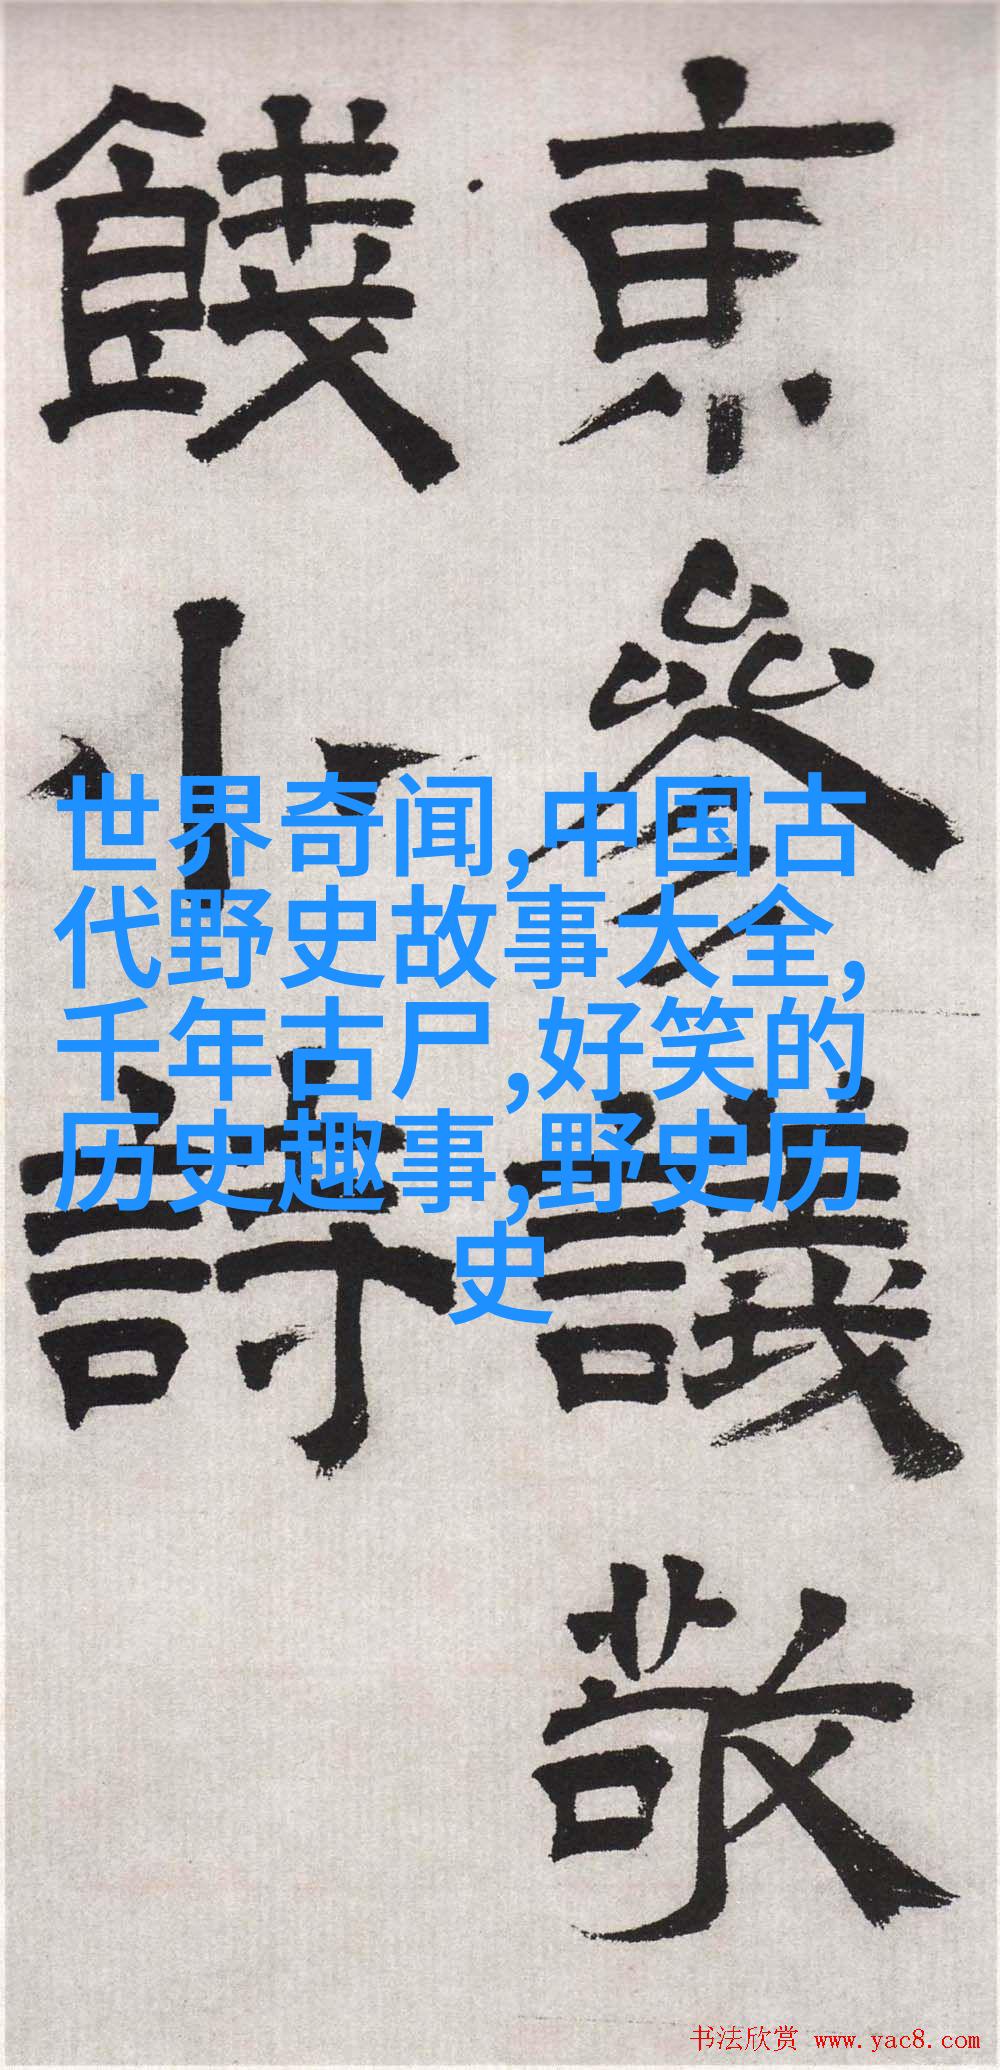 京參議敬
餞小詩
世界奇闻,中国古
代野史故事大全,
千年古尸,好笑的
历史趣事,野史历
史
书法欣赏 www.yac8.com